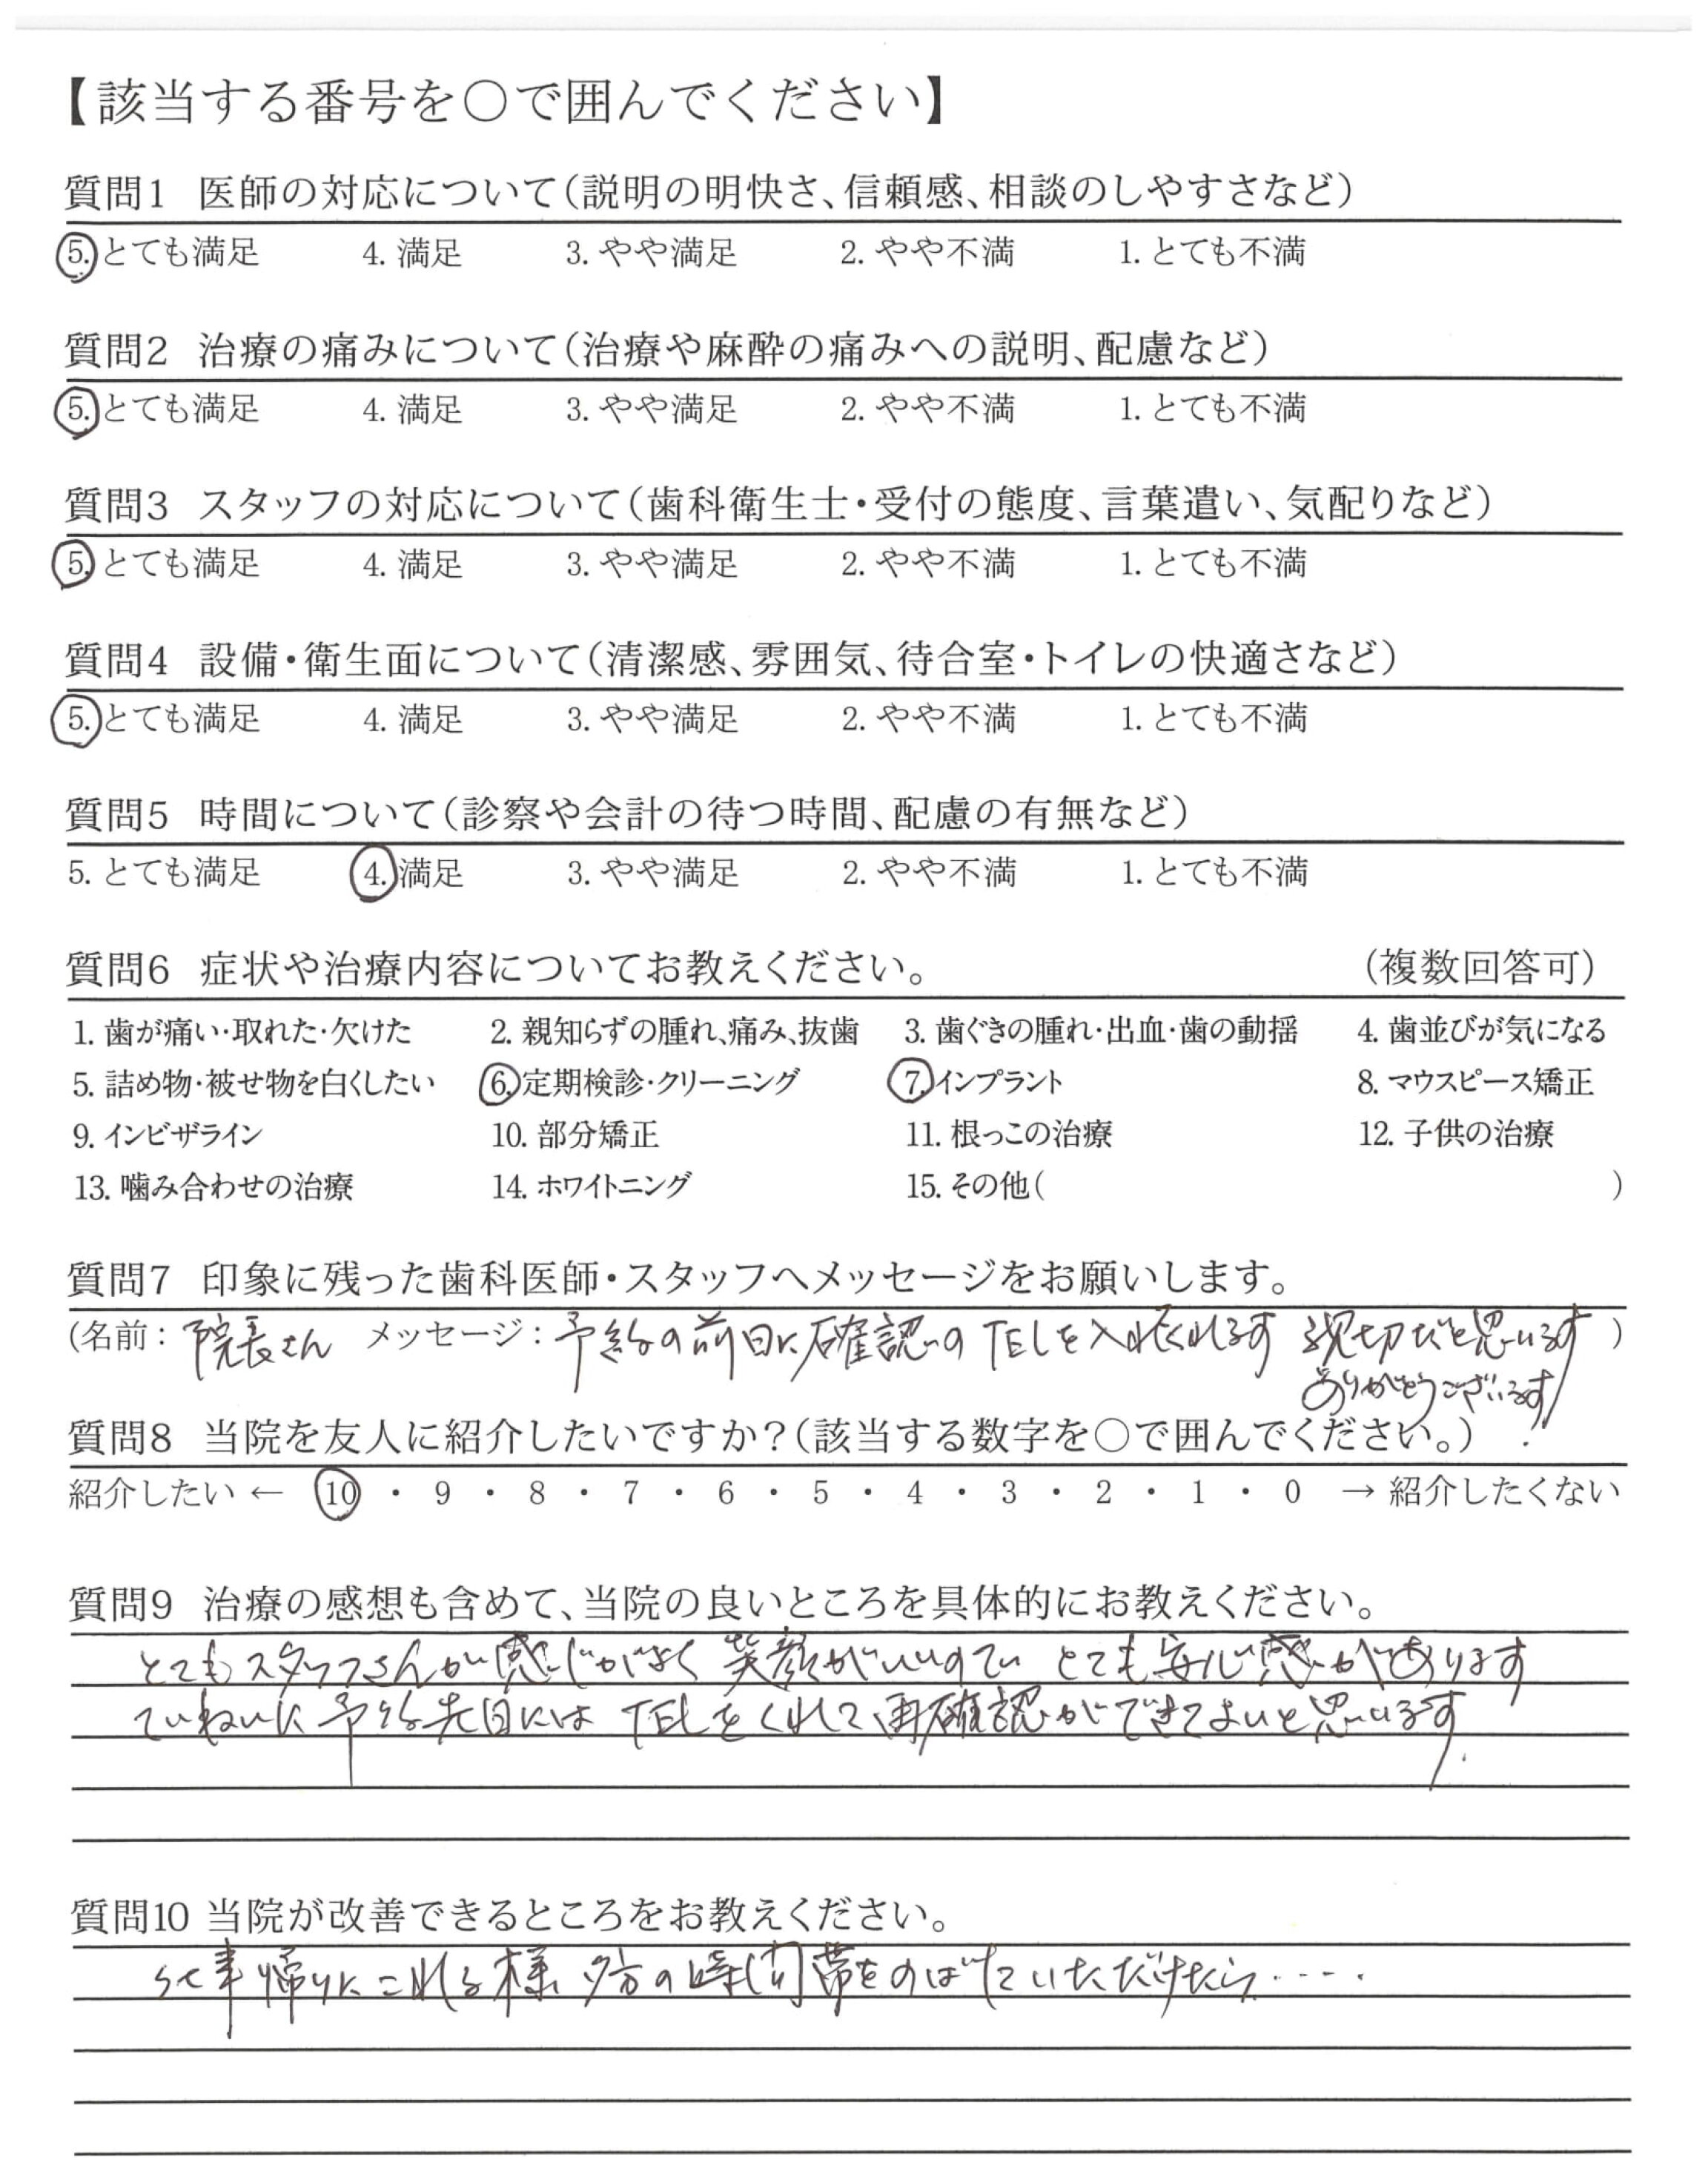 【該当する番号を〇で囲んでください】
質問1 医師の対応について(説明の明快さ、信頼感、相談のしやすさなど)
5. とても満足 4. 満足 3. やや満足 2. やや不満 1. とても不満
質問2 治療の痛みについて(治療や麻酔の痛みへの説明、配慮など)
5. とても満足 4. 満足 3. やや満足 2. やや不満 1. とても不満
質問3 スタッフの対応について(歯科衛生士・受付の態度、言葉遣い、気配りなど)
5. とても満足 4. 満足 3. やや満足 2. やや不満 1. とても不満
質問4 設備・衛生面について(清潔感、雰囲気、待合室・トイレの快適さなど)
5. とても満足 4. 満足 3. やや満足 2. やや不満 1. とても不満
質問5 時間について(診察や会計の待つ時間、配慮の有無など)
5. とても満足 4. 満足 3. やや満足 2. やや不満 1. とても不満
質問6 症状や治療内容についてお教えください。 (複数回答可)
1. 歯が痛い・取れた・欠けた 2. 親知らずの腫れ、痛み、抜歯 3. 歯ぐきの腫れ・出血・歯の動揺 4. 歯並びが気になる
5. 詰め物・被せ物を白くしたい 6. 定期検診・クリーニング 7. インプラント 8. マウスピース矯正
9. インビザライン 10. 部分矯正 11. 根っこの治療 12. 子供の治療
13. 噛み合わせの治療 14. ホワイトニング 15. その他( )
質問7 印象に残った歯科医師・スタッフへメッセージをお願いします。
(名前: 院長さん メッセージ: 予約の前日に確認のTELを入れてくれます 親切だと思います )
ありがとうございます
質問8 当院を友人に紹介したいですか?(該当する数字を〇で囲んでください。)
紹介したい ← 10 ・ 9 ・ 8 ・ 7 ・ 6 ・ 5 ・ 4 ・ 3 ・ 2 ・ 1 ・ 0 → 紹介したくない
質問9 治療の感想も含めて、当院の良いところを具体的にお教えください。
とてもスタッフさんが感じがよく 笑顔がいいので とても安心感があります
ていねいに予約日には TELをくれて再確認ができてよいと思います.
質問10 当院が改善できるところをお教えください。
仕事帰りにこれる様 夕方の時間帯をのばしていただけたら・・・・.